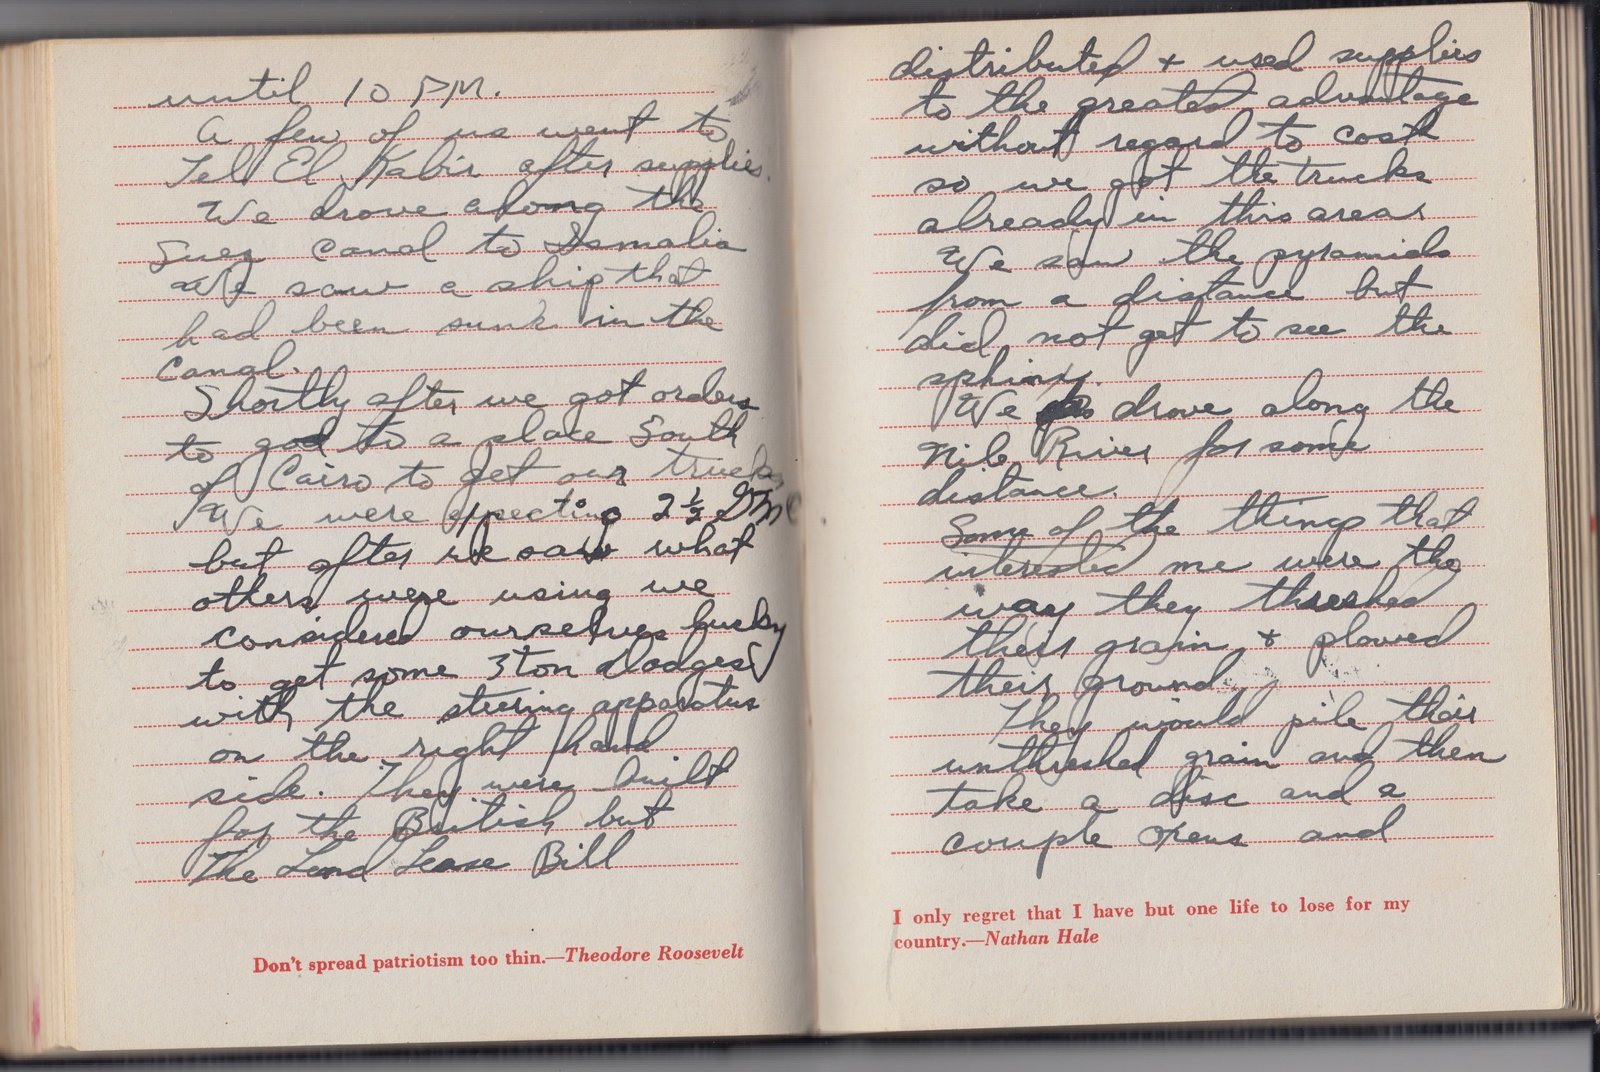 until 10 PM.
A few of us went to
Tel El Kabir after supplies.
We drove along the
Suez canal to Ismalia
We saw a ship that
had been sunk in the
Canal.
Shortly after we got orders
to go to a place South
of Cairo to get our trucks
We were expecting 2 1/2 GMC
but after we saw what
others were using we
considered ourselves lucky
to get some 3 ton Dodges
with the steering apparatus
on the right hand
side. They were built
for the British but
The Lend Lease Bill
Don't spread patriotism too thin.—Theodore Roosevelt
distributed + used supplies
to the greatest advantage
without regard to cost
so we got the trucks
already in this area.
We saw the pyramids
from a distance but
did not get to see the
sphinx.
We drove along the
Nile River for some
distance.
Some of the things that
interested me were the
way they threshed
their grain + plowed
their ground.
They would pile their
unthreshed grain and then
take a disc and a
couple oxens and
I only regret that I have but one life to lose for my
country.—Nathan Hale